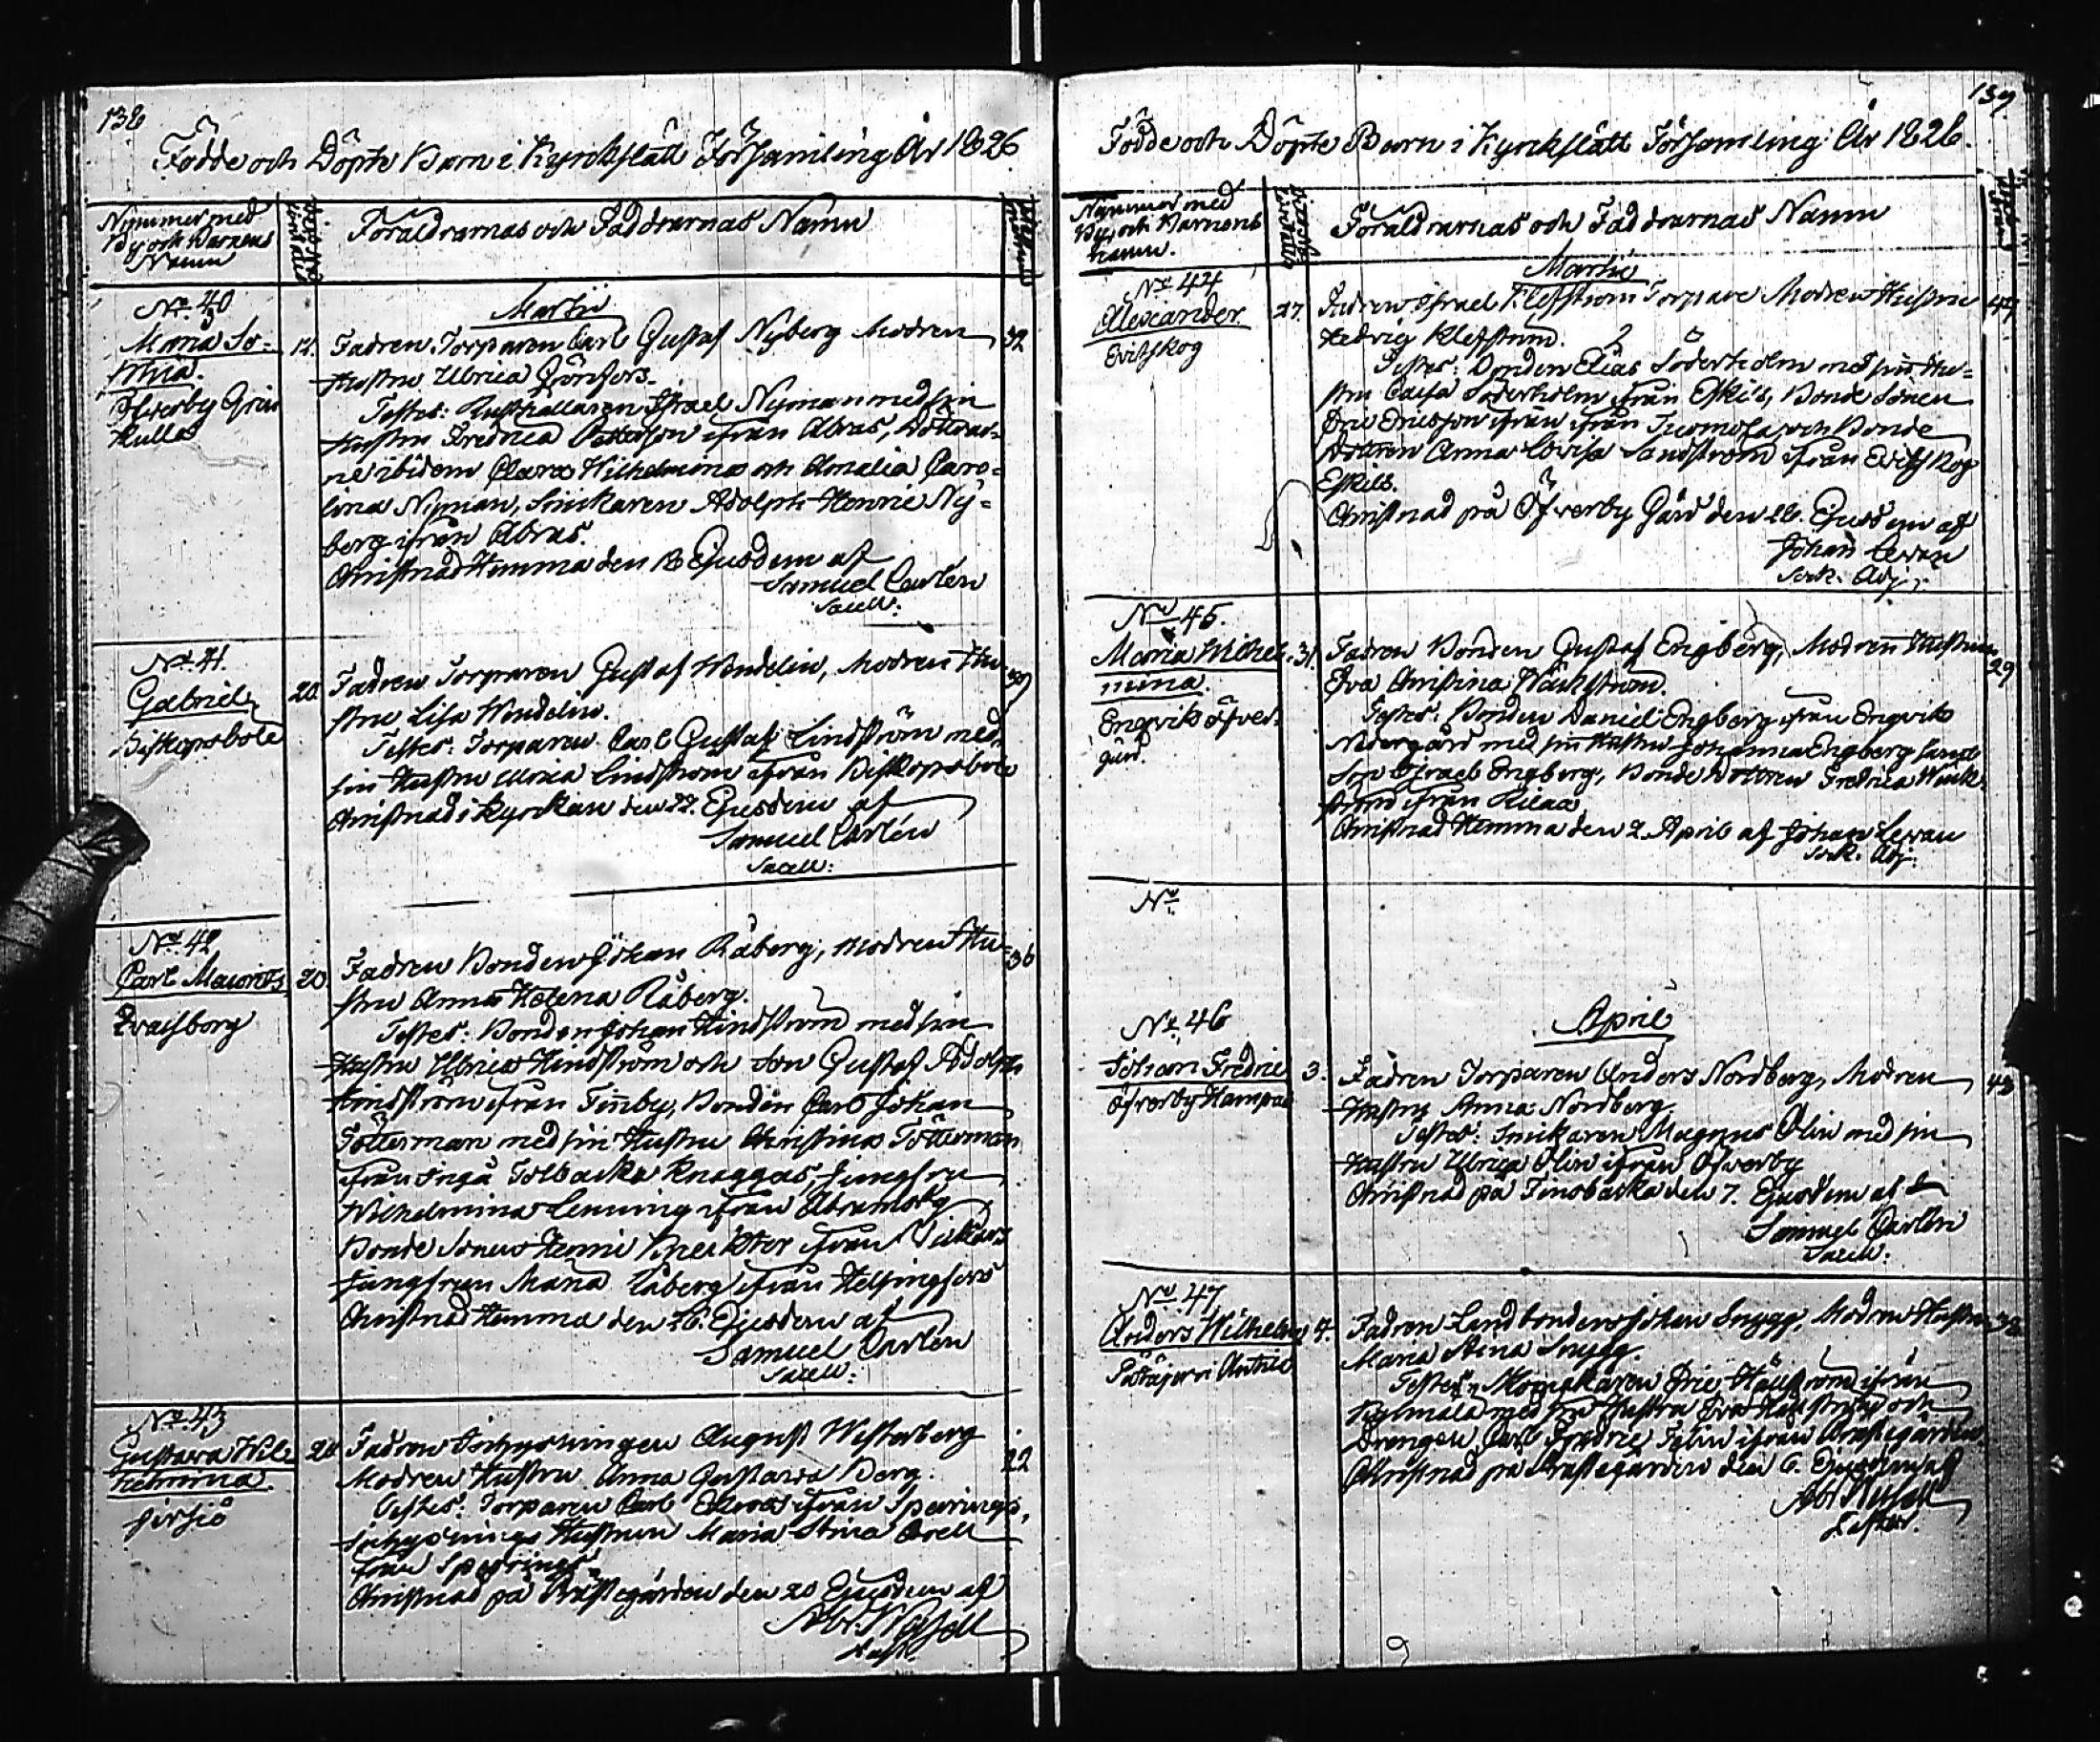 138
Födde och Döpte Barn i Kyrckslätt Församling År 1826
Nummer med
By och Barnens
Namn
Föräldrarnas och Faddrarnas Namn
No. 40
Maria So-
phia.
Öfverby
kulla
Martii
14. Fadren Torparen Carl Gustaf Nyberg Modren 32
Hustru Ulrica Grönfors.
Testes: Rusthållaren Israel Nyman med sin
Hustru Fredrica Petterson ifrån Abras, Döttrar-
ne ibidem Clara Wilhelmina och Amalia Caro-
lina Nyman, Snickaren Adolph Henric Ny-
berg ifrån Abras.
Christnad Hemma den 18 Ejusdem af
Samuel Carlén
Sacell:
No. 41.
Gabriel
Biskopsböle
20. Fadren Torparen Gustaf Wendelin, Modren Hu- 39
stru Lisa Wendelin.
Testes: Torparen Carl Gustaf Lindström med
sin Hustru Ulrica Lindström ifrån Biskopsböle
Christnad i Kyrckan den 27. Ejusdem af
Samuel Carlén
Sacell:
No. 42
Carl Mauritz
Evalsborg
20. Fadren Bonden Johan Råberg, Modren Hu- 36
stru Anna Helena Råberg.
Testes: Bonden Johan Hindström med sin
Hustru Ulrica Hindström och Son Gustaf Adolph
Hindström ifrån Finnby, Bonden Carl Johan
Tötterman med sin Hustru Christina Tötterman
ifrån Ingå Tolbacka Knaggas, Jungfru
Wilhelmina Lenning ifrån Abramsby
Bonde Sonen Henric ifrån Vickars
Jungfrun Maria Råberg ifrån Helsingfors
Christnad Hemma den 26. Ejusdem af
Samuel Carlén
Sacell:
No. 43
Gustava Wil-
helmina.
Jorsiö
20 Fadren Inhysningen August Westerberg 22
Modren Hustru Anna Gustava Berg.
Testes: Torparen Carl Ekroos ifrån Sperrings,
Inhysnings Hustrun Maria Stina Orell
från Sperrings.
Christnad på Prästegården den 20 Ejusdem af
139
Födde och Döpte Barn i Kyrckslätt Församling År 1826.
Nummer med
By och Barnens
Namn.
Föräldrarnas och Faddrarnas Namn
No. 44
Alexander
Evitskog
Martii
27. Fadren Israel Klefström Torpare Modren Hustru 44
Hedvig Klefström.
Testes: Bonden Elias Söderholm med sin Hu-
stru Caisa Söderholm ifrån Eskils, Bonde Sonen
Eric Ericsson ifrån ifrån och Bonde
Dottren Anna Lovisa Sandström ifrån Evitskog
Eskils.
Christnad på Öfverby Gård den 28. Ejusdem af
Johan Levan
Sock. Adj:
No. 45.
Maria Wilhel-
mina.
Engvik Öfver-
gård.
31. Fadren Bonden Gustaf Engberg, Modren Hustrun 29
Eva Christina Wickström.
Testes: Bonden Daniel Engberg ifrån Engviks
Nedergård med sin Hustru Johanna Engberg samt
Son Israel Engberg, Bonde Dottren Fredrica Wick-
ström ifrån Kilaa
Christnad Hemma den 2. April af Johan Levan
Sock. Adj:
No.
No. 46
Johan Fredric
Öfverby Kampas
April
3. Fadren Torparen Anders Nordberg, Modren 42
Hustru Anna Nordberg.
Testes: Snickaren Magnus Olin med sin
Hustru Ulrica Olin ifrån Öfverby
Christnad på Finsbacka den 7. Ejusdem af
Samuel Carlén
Sacell:
No. 47
Anders Wilhelm
4. Fadren Landbonden Johan Snygg, Modren Hustru 38
Maria Stina Snygg.
Testes: Eric Hällström ifrån
Kylmälä med sin Hustru Eva Hällström och
Drengen Carl Fredric ifrån Prästegården.
Christnad på Prästegården den 6. Ejusdem af